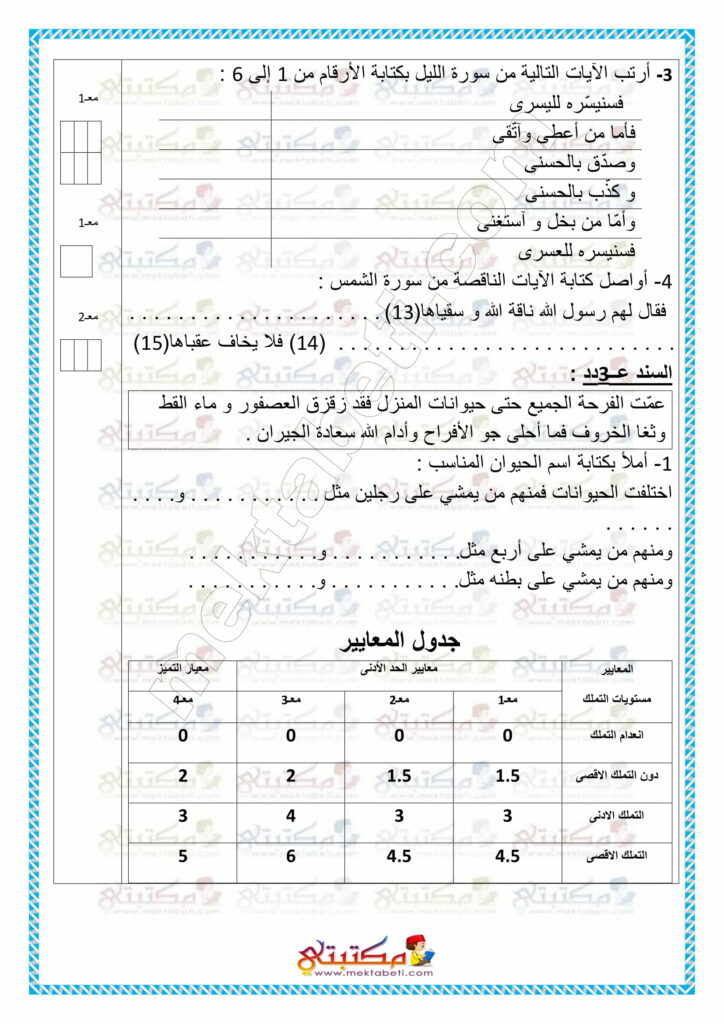 3- أرتب الآيات التالية من سورة الليل بكتابة الأرقام من 1 إلى 6 :
فسنيسّره لليسرى
فأما من أعطى وآتّقى
وصدّق بالحسنى
و كذّب بالحسنى
وأمّا من بخل و آستغنى
فسنيسره للعسرى
معـ1
معـ1
4- أواصل كتابة الآيات الناقصة من سورة الشمس :
فقال لهم رسول الله ناقة الله و سقياها(13) . . . . . . . . . . . . . . . . . . . .
. . . . . . . . . . . . . . . . . . . . . . . . . . . . (14) فلا يخاف عقباها(15)
معـ2
السند عــ3دد :
عمّت الفرحة الجميع حتى حيوانات المنزل فقد زقزق العصفور و ماء القط
وثغا الخروف فما أحلى جو الأفراح وأدام الله سعادة الجيران .
1- أملأ بكتابة اسم الحيوان المناسب :
اختلفت الحيوانات فمنهم من يمشي على رجلين مثل. . . . . . . . . . . و. . . .
. . . . . .
ومنهم من يمشي على أربع مثل. . . . . . . . . . . و. . . . . . . . . . .
ومنهم من يمشي على بطنه مثل. . . . . . . . . . . و. . . . . . . . . . .
جدول المعايير
المعايير معايير الحد الأدنى معيار التميز
مستويات التملك معـ1 معـ2 معـ3 معـ4
انعدام التملك 0 0 0 0
دون التملك الاقصى 1.5 1.5 2 2
التملك الادنى 3 3 4 3
التملك الاقصى 4.5 4.5 6 5
mektabeti.com
مكتبتي
www.mektabeti.com